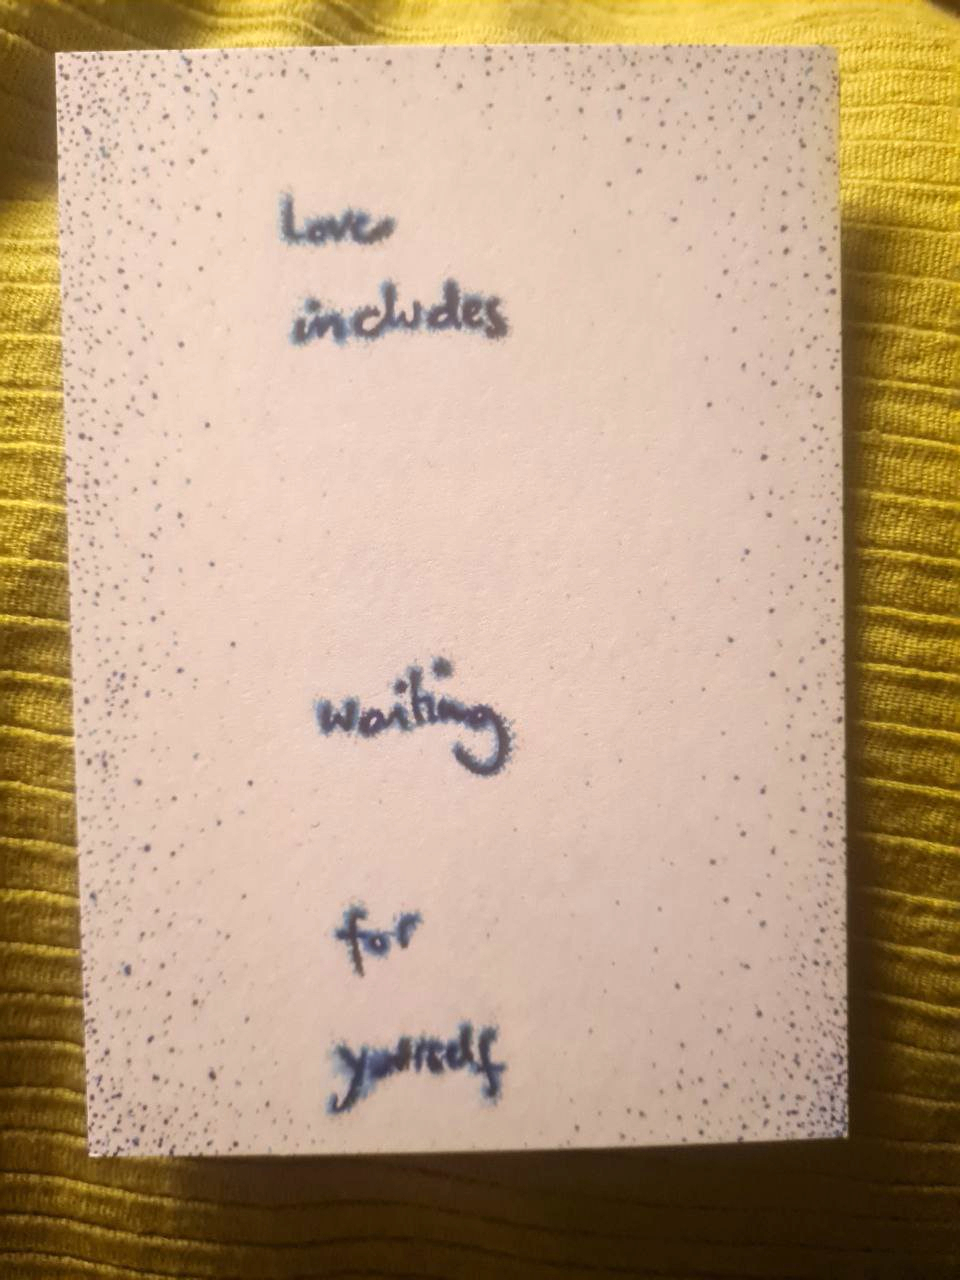 Love
includes
waiting
for
yourself